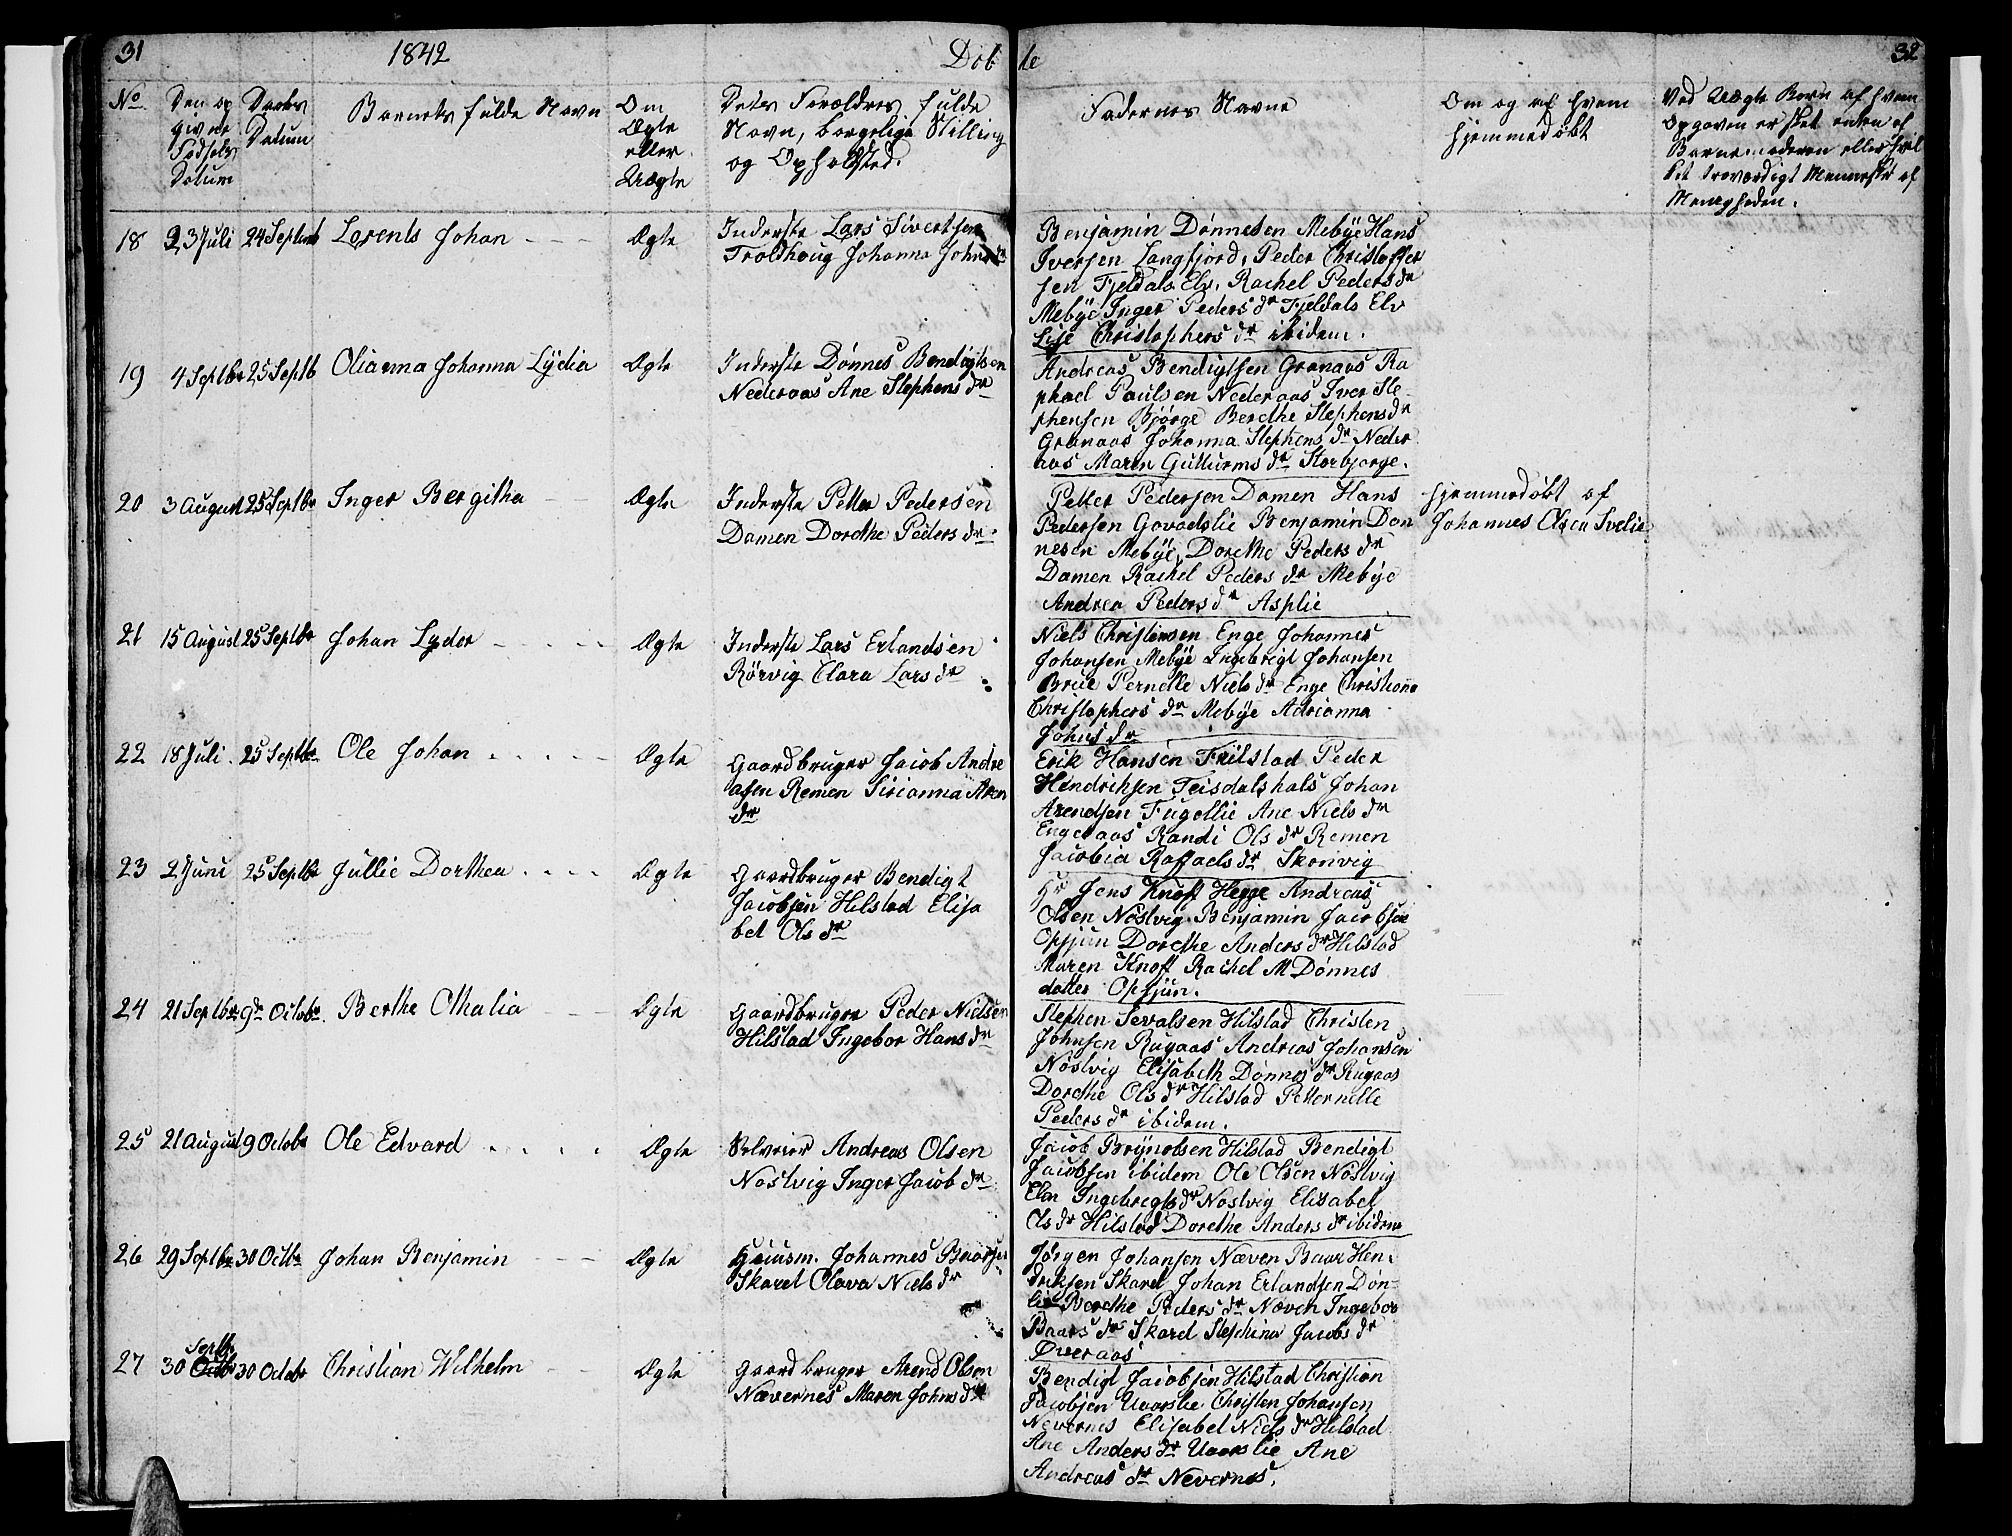 31 1842 Döb te 32
No. Den op givne Födsels Datum
Daabs Datum
Barnets fulde Navn
Om Ægte eller Uægte
Dets Forældres fulde Navn, borgelige Stilling og Opholdsted.
Fadernes Navne
Om og af hvem hjemmedöbt
Ved Uægte Børn af hvem Opgaven er sket enten af Barnemoderen eller hvil ket troværdigt Menneske af Menigheden.
18 23 Juli 24 Septmb Lorents Johan Ægte
Inderste Lars Sivertsen
Troldhoug Johanna Johns dr
Benjamin Dönnesen Mebÿe Hans
Iversen Langfjord, Peder Christoffer
sen Fjeldals Elv, Rachel Peders dr
Mebÿe Inger Peders dr Fjeldals Elv
Lise Christophers dr ibidem.
19 4 Septbr 25 Septb Olianna Johanna Lÿdia Ægte
Inderste Dönnes Bendigtsen
Nederaas Ane Stephens dr
Andreas Bendigtsen Granaas Ra
phael Paulsen Nederaas Iver Ste
phensen Bjørge Berethe Stephens dr
Granaas Johanna Stephens dr Neder
aas Maren Gutturms dr Storbjørge.
20 3 August 25 Septbr Inger Bergitha Ægte
Inderste Petter Pedersen
Damen Dorethe Peders dr
Petter Pedersen Damen Hans
Pedersen Gavadslie Benjamin Don
nesen Mebÿe, Dorethe Peders dr
Damen Rachel Peders dr Mebÿe
Andrea Peders dr Asplie
hjemmedöbt af
Johannes Olsen Svelie
21 15 August 25 Septbr Johan Lyder Ægte
Inderste Lars Erlandsen
Rörvig Clara Lars dr
Niels Christensen Enge Johannes
Johansen Mebÿe Ingebrigt Johansen
Brue Pernelle Niels dr Enge Christianna
Christophers dr Mebÿe Adrianna
Johns dr
22 18 Juli 25 Septbr Ole Johan Ægte
Gaardbruger Jacob Andre
asen Remen Sirianna Aren
dr
Erik Hansen Frilstad Peder
Hendriksen Teisdalshals Johan
Arendsen Fugellie Ane Niels dr
Engeraas Randi Ols dr Remen
Jacobia Raffaels dr Skorivig
23 2 Juni 25 Septbr Jullie Dorthea Ægte
Gaardbruger Bendigt
Jacobsen Hilstad Elisa
bet Ols dr
Hr Jens Knoff Hegge Andreas
Olsen Nöstvig Benjamin Jacobsen
Opsjün Dorethe Anders dr Hilstad
Maren Knoff Rachel M Dönnes
datter Opsjün.
24 21 Septbr 9de Octobr Berthe Othalia Ægte
Gaardbruger Peder Nielsen
Hilstad Ingebor Hans dr
Stephen Sevalsen Hilstad Christen
Johnsen Rugaas Andreas Johansen
Nöstvig Elisabeth Dönnes dr Rugaas
Dorethe Ols dr Hilstad Petternelle
Peders dr ibidem.
25 21 August 9 Octobr Ole Edvard Ægte
Selveier Andreas Olsen
Nöstvig Inger Jacob dr
Jacob Brÿnolsen Hilstad Bendigt
Jacobsen ibidem Ole Olsen Nöstvig
Elen Ingebregts dr Nöstvig Elisabet
Ols dr Hilstad Dorethe Anders dr ibidem
26 29 Septbr 30 Octbr Johan Benjamin Ægte
Huusm. Johannes Baarsen
Skaret Olava Niels dr
Jörgen Johansen Næven Baar Hen
driksen Skaret Johan Erlandsen Dön
lie Berethe Peders dr Næven Ingebor
Baars dr Skard Stephina Jacobs dr
Överaas
27 30 Septbr 30 Octobr Christian Wilhelm Ægte
Gaardbruger Arend Olsen
Nævernes Maren Johns dr
Bendigt Jacobsen Hilstad Christian
Jacobsen Uaarslie Christen Johansen
Nevernes Elisabet Niels dr Hilstad
Ane Anders dr Uaarslie Ane
Andreas dr Nevernes.